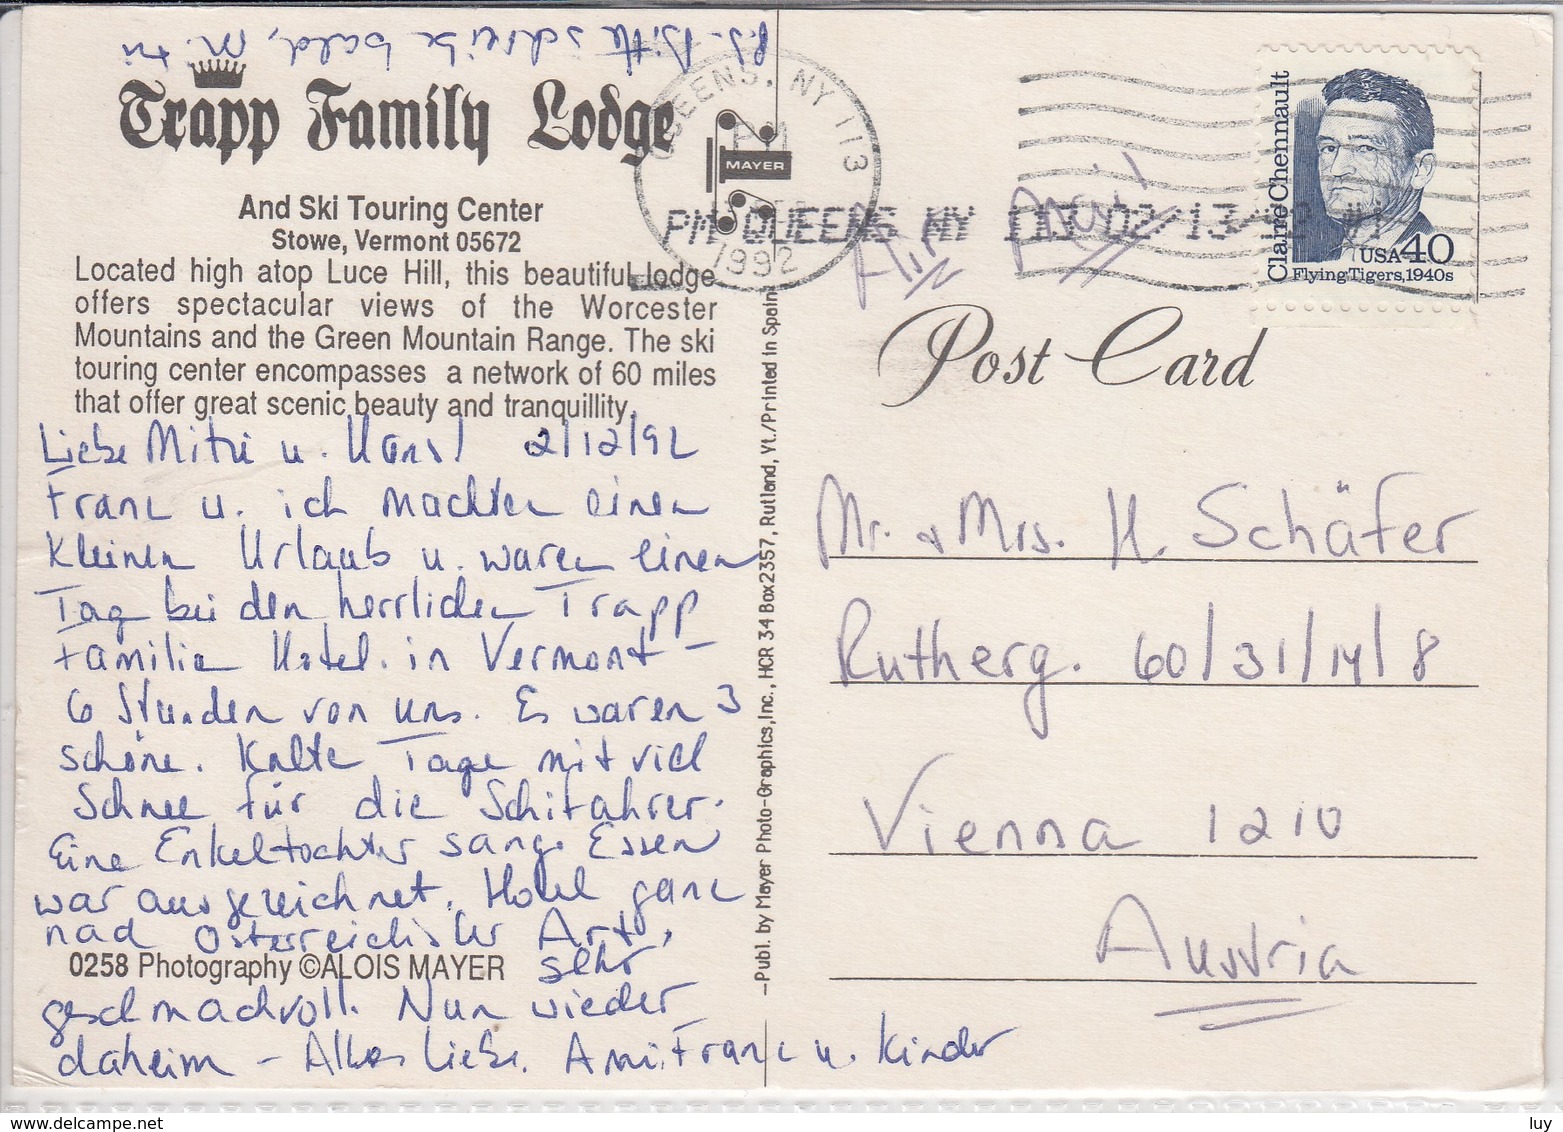 P.S. Bitte schreibe bald, M.
Trapp Family Lodge
And Ski Touring Center
Stowe, Vermont 05672
Located high atop Luce Hill, this beautiful lodge
offers spectacular views of the Worcester
Mountains and the Green Mountain Range. The ski
touring center encompasses a network of 60 miles
that offer great scenic beauty and tranquillity.
Liebe Mitzi u. Hans! 2/12/92
Franz u. ich machten einen
kleinen Urlaub u. waren einen
Tag bei den herrlichen Trapp
Familie Hotel. in Vermont –
6 Stunden von uns. Es waren 3
schöne. Kalte Tage mit viel
Schnee für die Schifahrer.
Eine Enkeltochter sang. Essen
war ausgezeichnet. Hotel ganz
nach österreichischer Art,
sehr
0258 Photography ©ALOIS MAYER
geschmackvoll. Nun wieder
daheim – Alles Liebe. Ami, Franz u. Kinder
—Publ. by Mayer Photo-Graphics, Inc., HCR 34 Box 2357, Rutland, Vt./Printed in Spain
MAYER
QUEENS, NY 113
PM
1992
PM QUEENS NY 113 02/13/92 #1
Air Mail
Claire Chennault
USA 40
Flying Tigers, 1940s
Post Card
Mr. & Mrs. H. Schäfer
Rutherg. 60/31/14/8
Vienna 1210
Austria
www.delcampe.net
luy